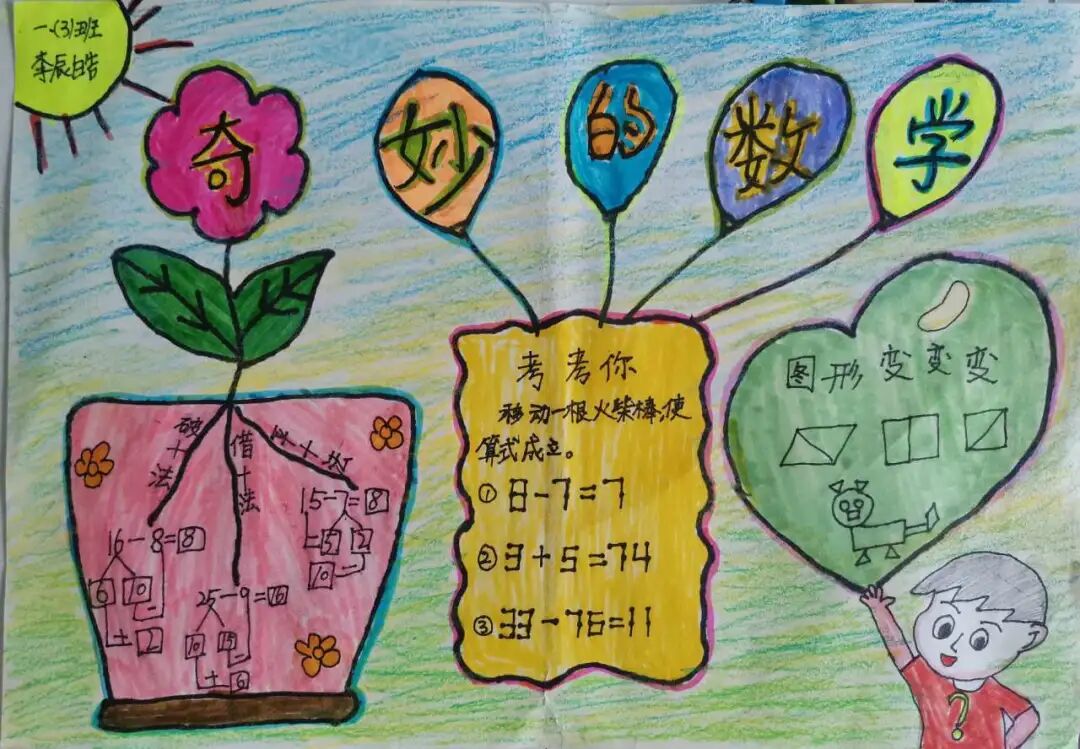 一.(3)班
李辰皓
奇妙的数学
破十法
借十法
平十法
16-8=8
6 10 -
+ 2
25-9=16
10 15 -
+ 6
15-7=8
- 5 2
10 -
考考你
移动一根火柴棒,使
算式成立。
① 8-7=7
② 3+5=74
③ 33-76=11
图形变变变
?